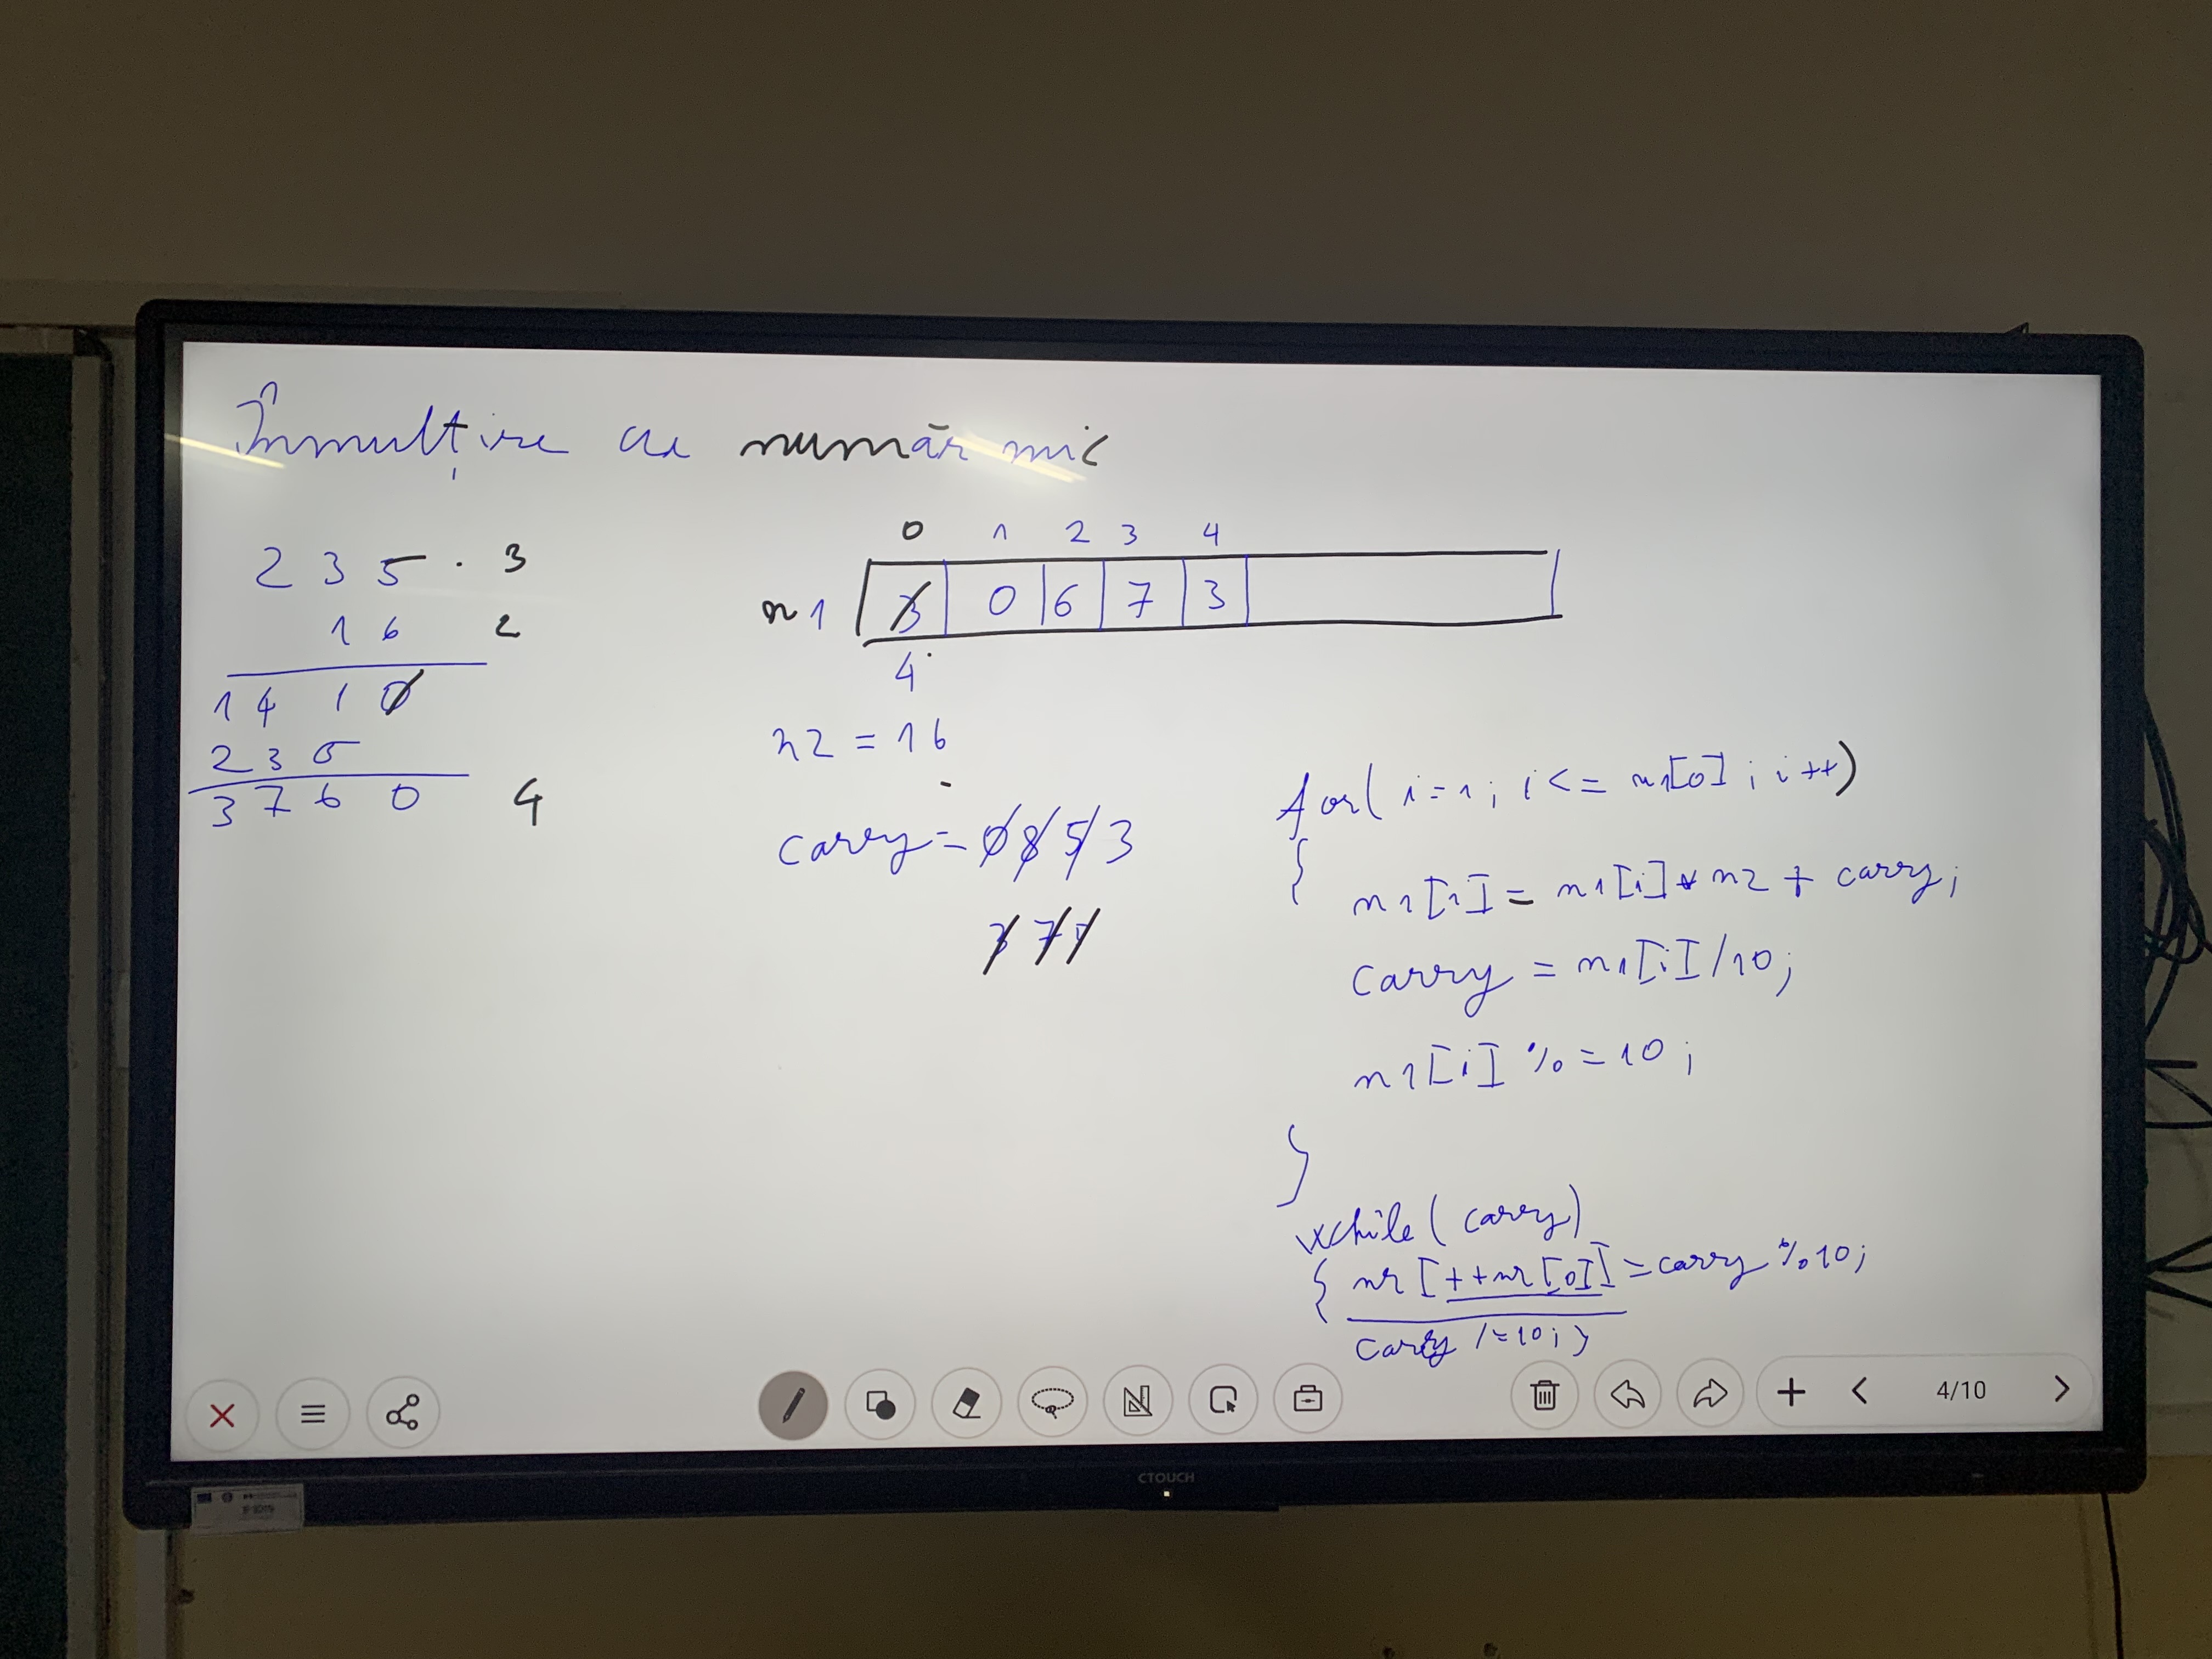 Înmulțire cu număr mic
2 3 5 . 3
1 6 2
1 4 1 0
2 3 5
3 7 6 0 4
0 1 2 3 4
n1 3 0 6 7 3
4
n2 = 16
carry = 0 8 5 3
for( i=1; i<= n1[0]; i++)
{ n1[i] = n1[i] * n2 + carry;
carry = n1[i]/10;
n1[i] %=10;
}
while(carry)
{ nr[++nr[0]]=carry%10;
carry /=10; }
4/10
CTOUCH